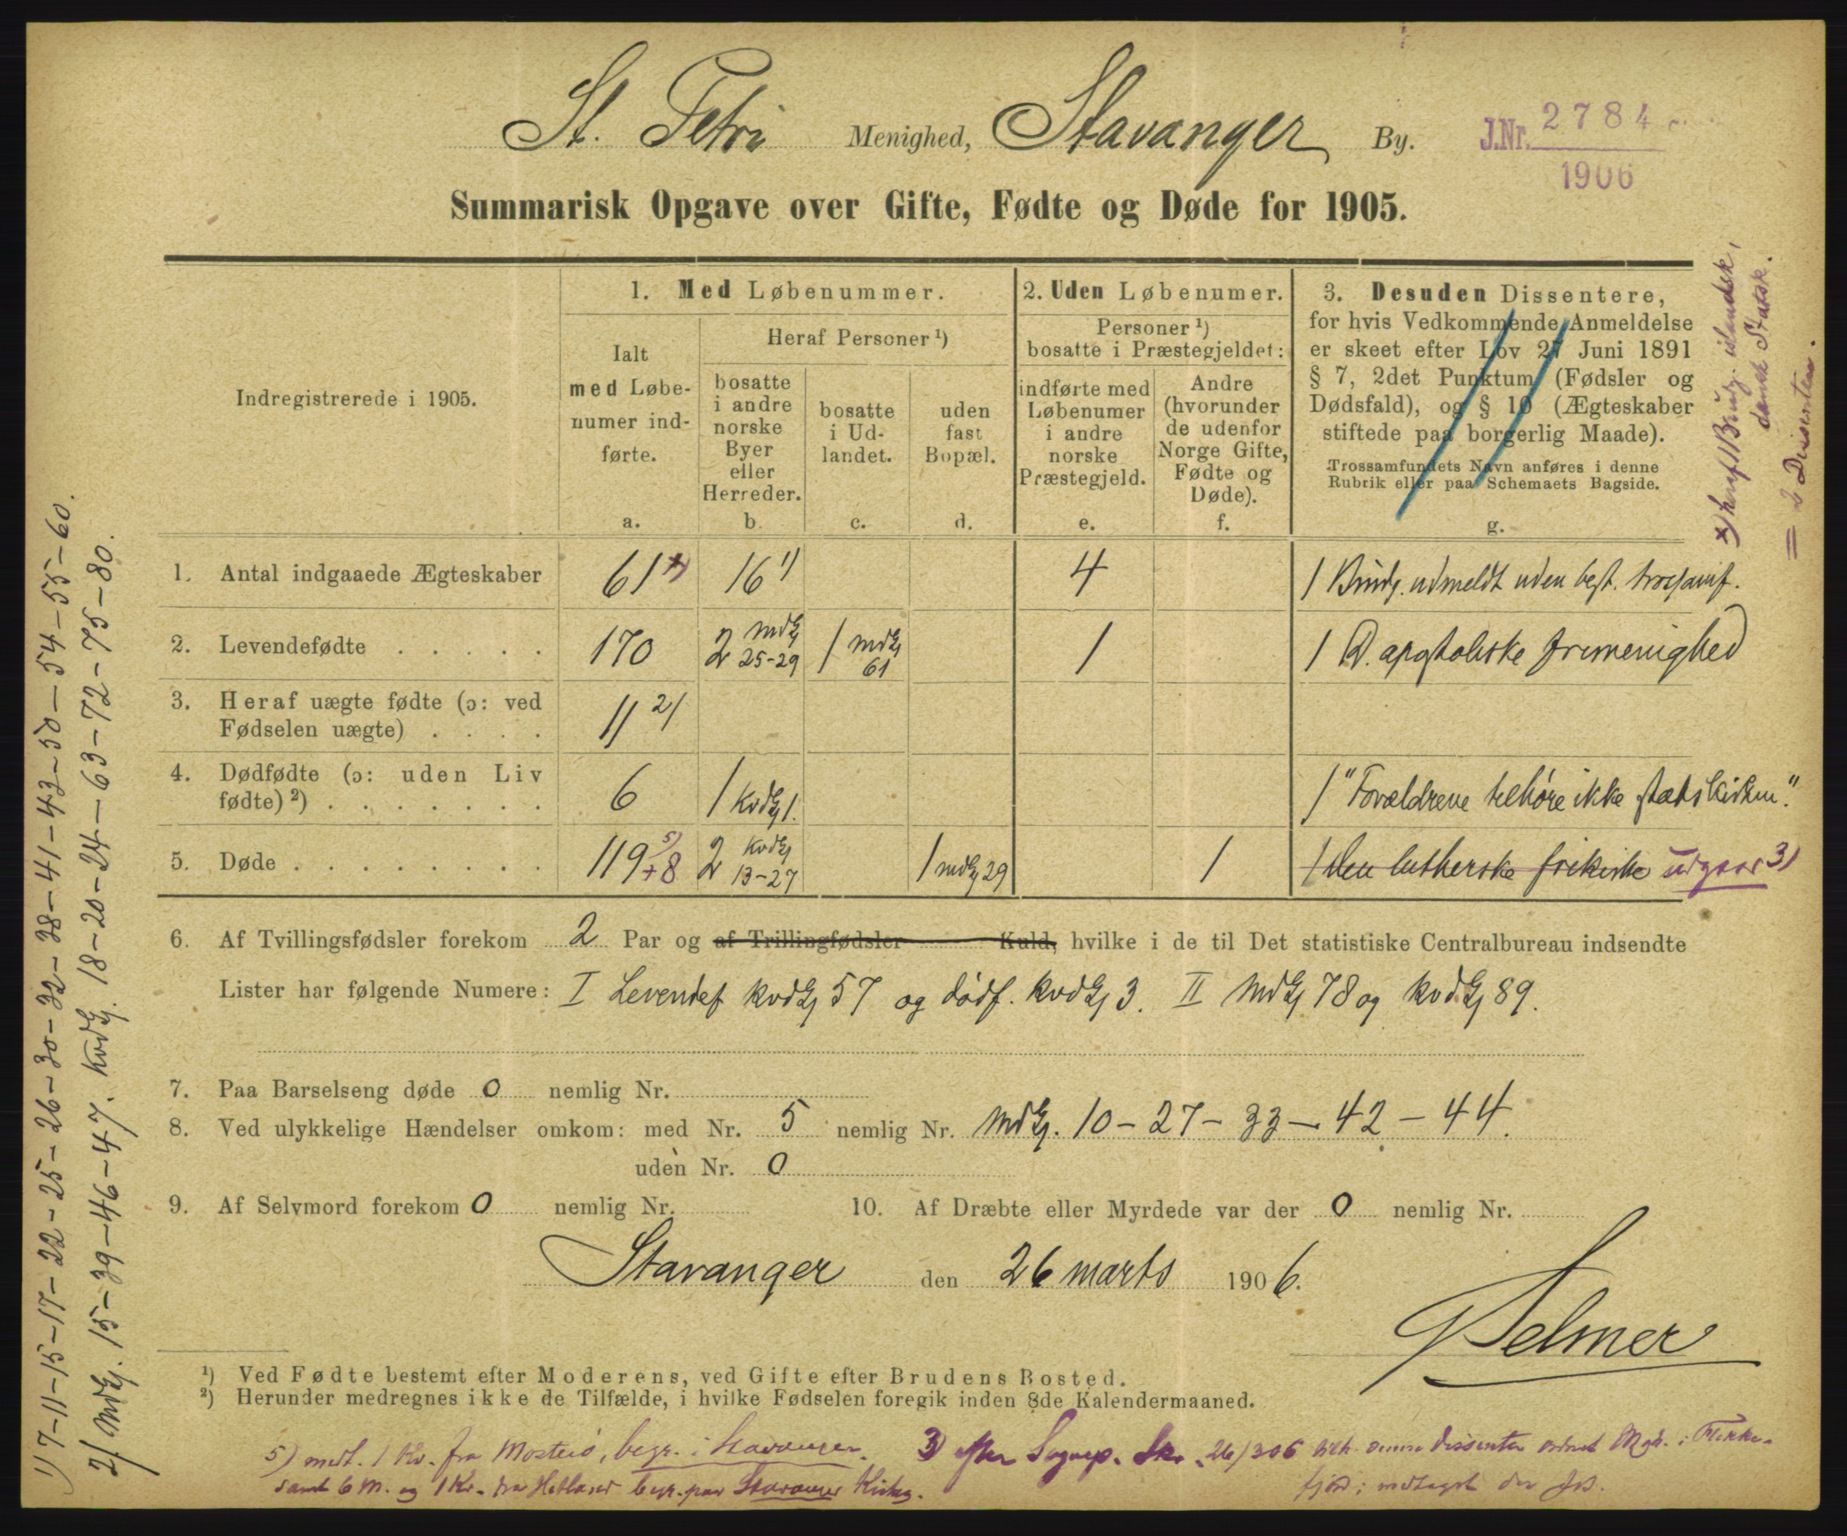 St. Petri Menighed, Stavanger By.
J.Nr. 2784
1906
Summarisk Opgave over Gifte, Fødte og Døde for 1905.
Indregistrerede i 1905.
1. Med Løbenummer.
Ialt
med Løbe-
numer ind-
førte.
a.
Heraf Personer ¹)
bosatte
i andre
norske
Byer
eller
Herreder.
b.
bosatte
i Ud-
landet.
c.
uden
fast
Bopæl.
d.
2. Uden Løbenumer.
Personer ¹)
bosatte i Præstegjeldet:
indførte med
Løbenumer
i andre
norske
Præstegjeld.
e.
Andre
(hvorunder
de udenfor
Norge Gifte,
Fødte og
Døde).
f.
3. Desuden Dissentere,
for hvis Vedkommende Anmeldelse
er skeet efter Lov 27 Juni 1891
§ 7, 2det Punktum (Fødsler og
Dødsfald), og § 10 (Ægteskaber
stiftede paa borgerlig Maade).
Trossamfundets Navn anføres i denne
Rubrik eller paa Schemaets Bagside.
g.
1. Antal indgaaede Ægteskaber 61 *) 16 1) 4 1 Brudg. udmeldt uden best. trossamf.
2. Levendefødte . . . . . 170 2 mdkj 25-29 1 mdkj 61 1 1 D. apostoliske frimenighed
3. Heraf uægte fødte (ɔ: ved
Fødselen uægte) . . . . 11 2)
4. Dødfødte (ɔ: uden Liv
fødte) ²) . . . . . . . 6 1 kvdkj 1. 1 "Forældrene tilhøre ikke statskirken".
5. Døde . . . . . . . . 119 5) +8 2 kvdkj 13-27 1 mdkj 29 1 1 den lutherske frikirke udgaar 3)
6. Af Tvillingsfødsler forekom 2 Par og af Trillingfødsler Kuld, hvilke i de til Det statistiske Centralbureau indsendte
Lister har følgende Numere: I Levendef kvdkj 57 og dödf. kvdkj 3. II Mdkj 78 og kvdkj 89.
7. Paa Barselseng døde 0 nemlig Nr.
8. Ved ulykkelige Hændelser omkom: med Nr. 5 nemlig Nr. Mdkj. 10-27-33-42-44.
uden Nr. 0
9. Af Selvmord forekom 0 nemlig Nr.
10. Af Dræbte eller Myrdede var der 0 nemlig Nr.
Stavanger den 26 marts 1906.
Selmer
¹) Ved Fødte bestemt efter Moderens, ved Gifte efter Brudens Bosted.
²) Herunder medregnes ikke de Tilfælde, i hvilke Fødselen foregik inden 8de Kalendermaaned.
5) medt. 1 Kv. fra Mosterö, begr. i Stavanger.
samt 6 M. og 1 Kv. fra Hetland begr. paa Stavanger Kirkeg.
3) efter Sognep. Skr. 26/3 06 denne dissenter
1) 7-11-15-17-22-25-26-30-32-38-41-43-50-54-55-60.
2) Mdkj. 15-39-46-47. Kvdkj. 18-20-24-63-72-75-80.
*) heraf 1 Brudg. islandsk,
dansk Statsk.
= 2 Dissentere.